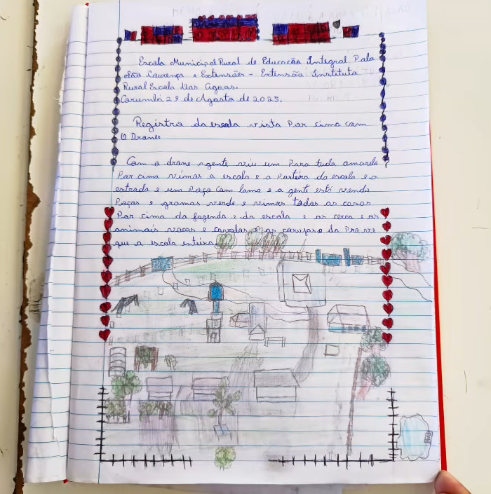 Escola Municipal Rural de Educação Integral Polo
Lourenço e Extensões - Extensão Instituto
Rural Escola das Águas.
Corumbá 29 de Agosto de 2025.
Registro da escola vista Por cima com
O Drone
Com o drone agente viu um Para tudo amarelo
Por cima vimos a escola e a Porteira da escola e o
entrada e um Poço com lama e a gente está vendo
Poços e gramas verde e vimos todas as casas
Por cima da fazenda e da escola e as cercas e os
animais vacas e cavalos
que a escola inteira